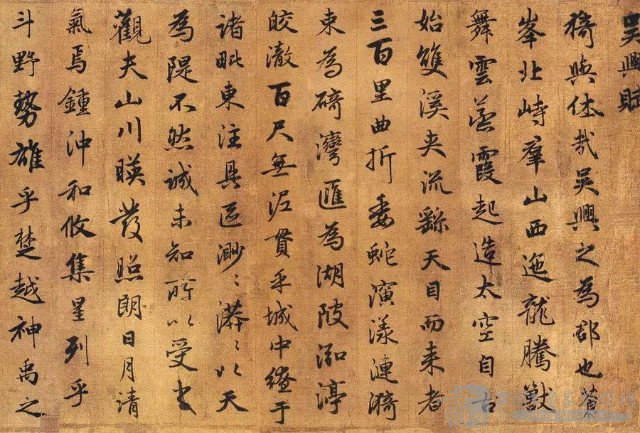 吳興賦
猗與休哉吳興之為郡也蒼
峯北峙羣山西迤龍騰獸
舞雲蒸霞起造太空自古
始雙溪夾流繇天目而來者
三百里曲折委蛇演漾漣漪
束為碕灣匯為湖陂泓渟
皎澈百尺無泥貫乎城中繚于
諸毗東注具區渺〻漭〻以天
為隄不然誠未知所以受之
觀夫山川暎發照朗日月清
氣焉鍾沖和攸集星列乎
斗野勢雄乎楚越神禹之